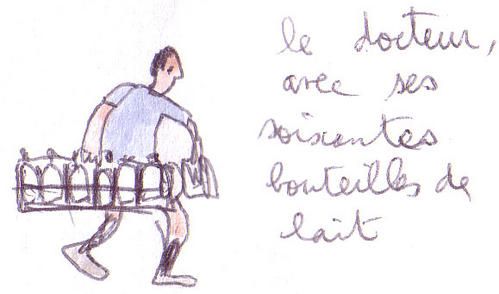 le docteur,
avec ses
soixantes
bouteilles de
lait